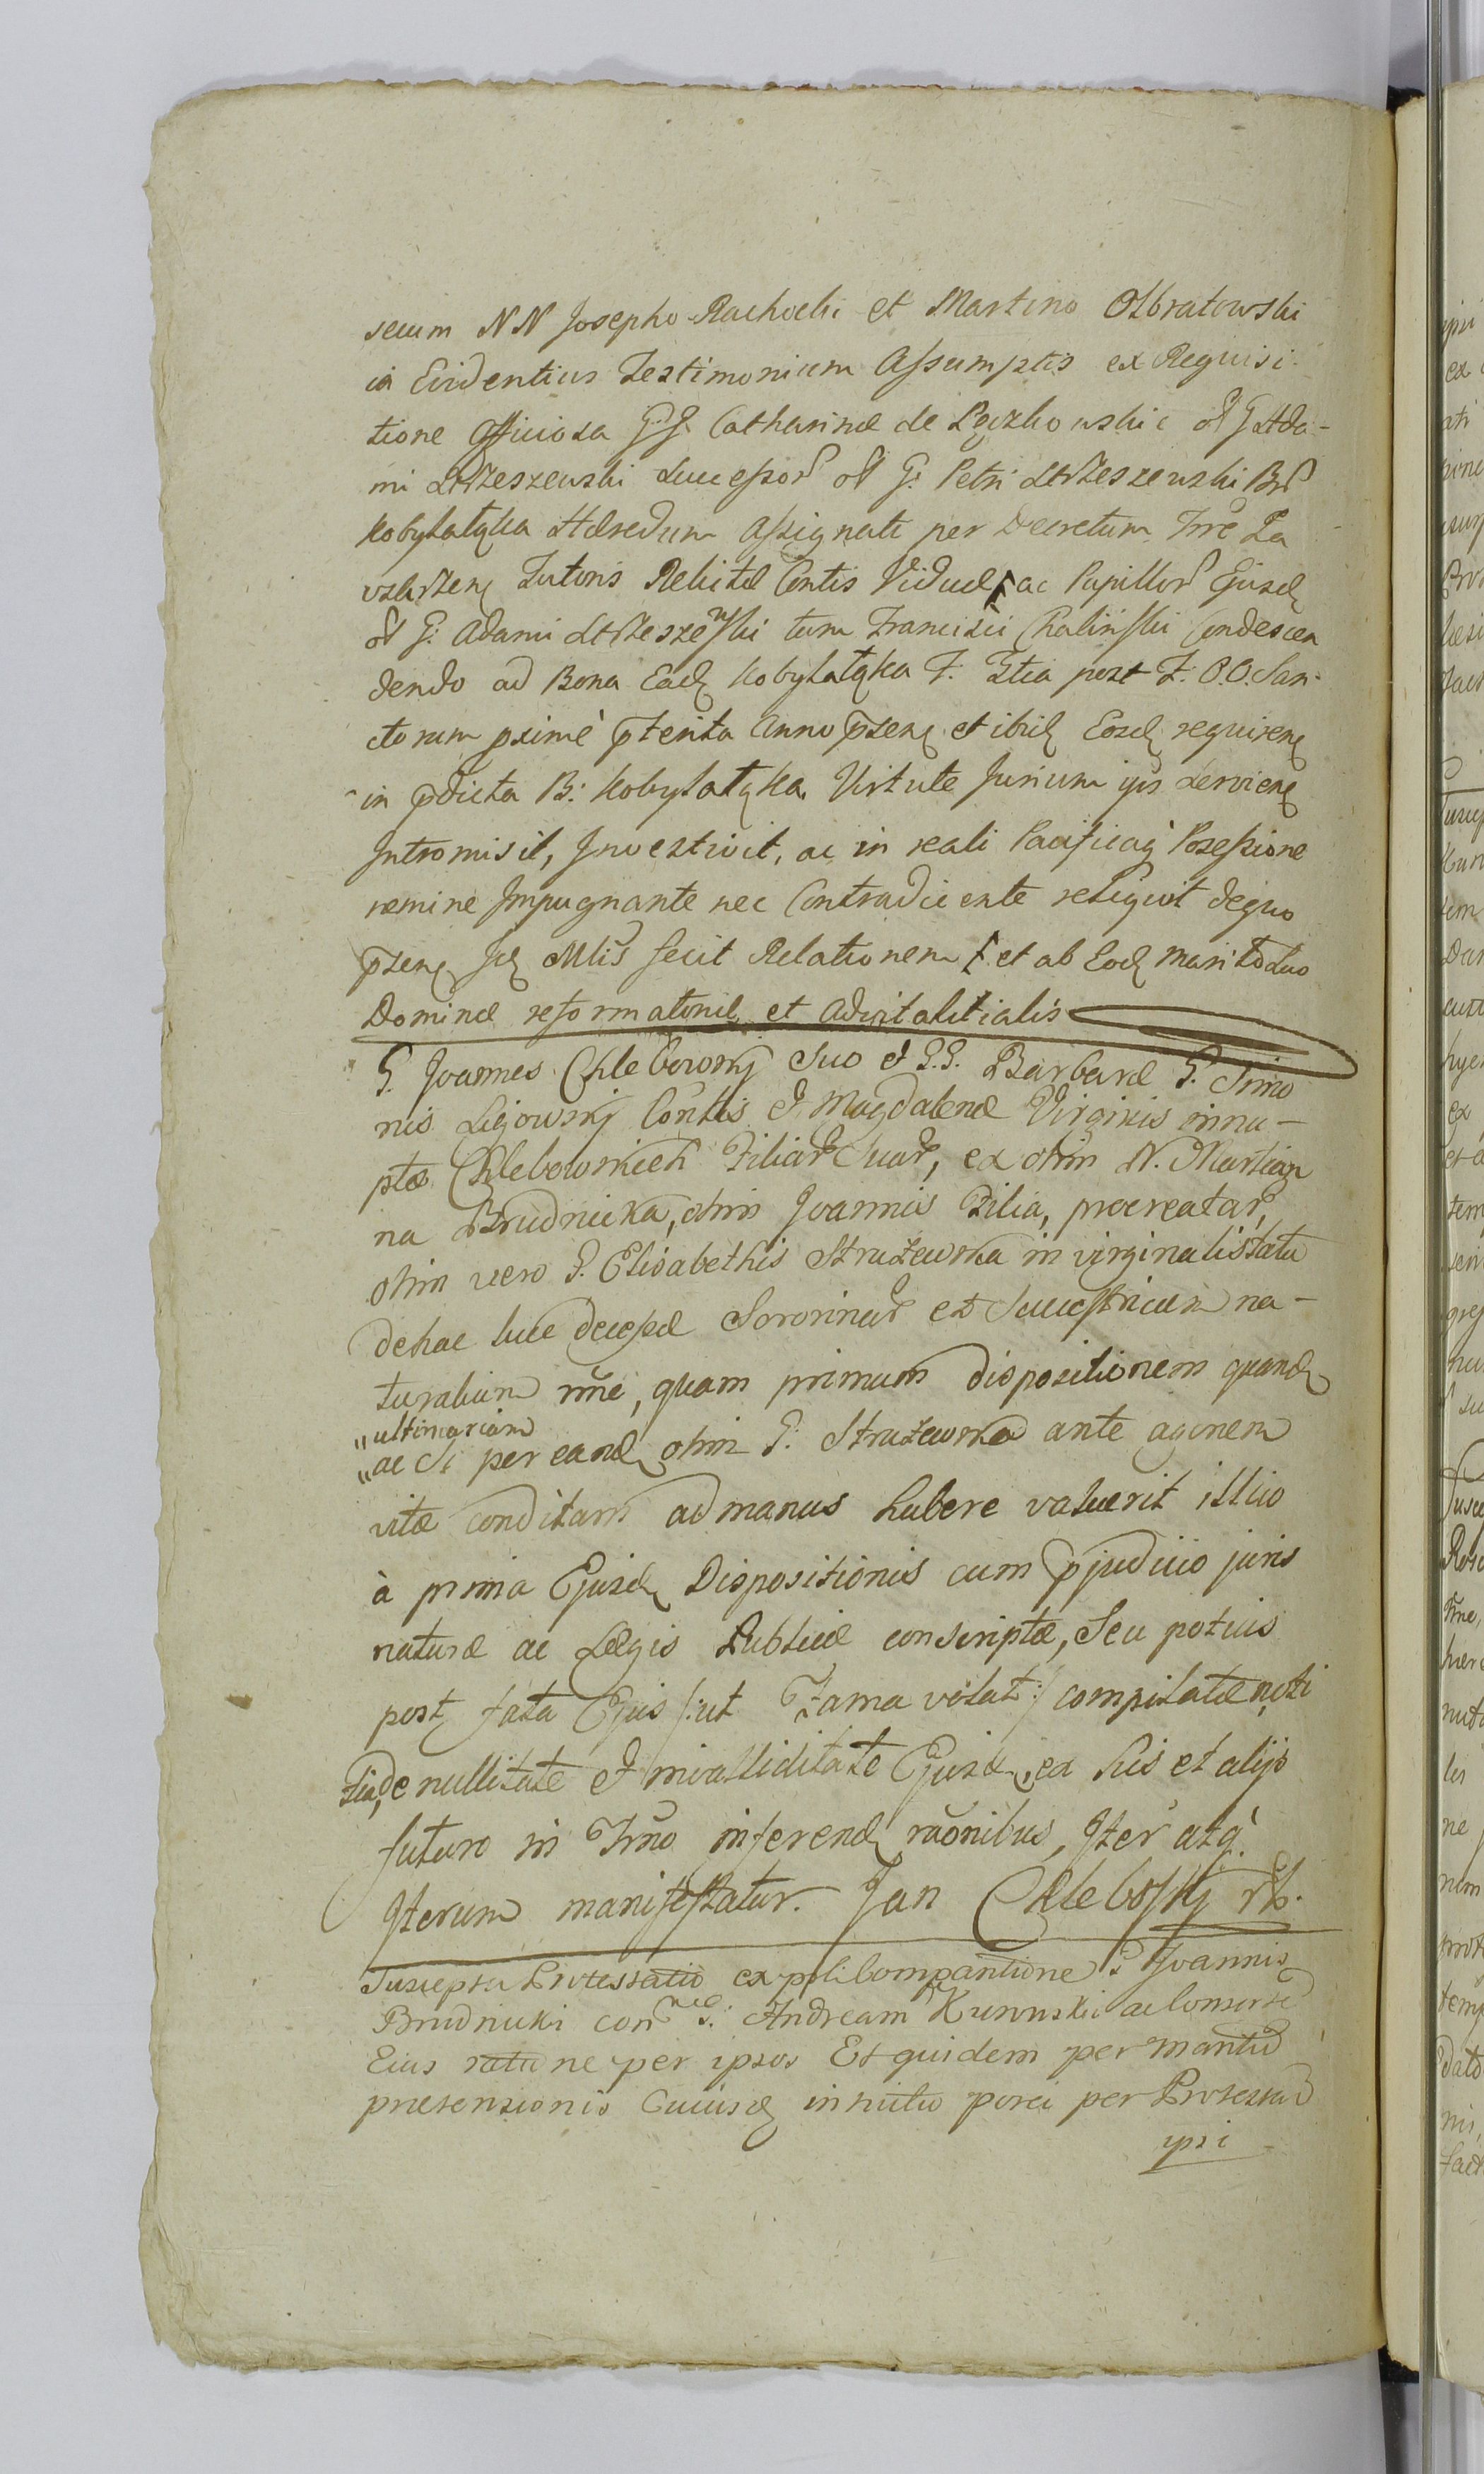 secum NN Josepho Rachocki et Martino Olbratowski
in Evidentius Testimonium Assumptis ex Requisi-
tione Officiosa GG. Catharinæ de Pęczkowskie ol G Ada-
mi Strzeszewski Successor ol G: Petri Strzeszewski Br
Kobylatąka Hæredum Assignati per Decretum Trre Za
wskrzen Tutoris Relictæ Contis Viduæ ac Pupillor Ejusd
ol G: Adami Strzeszewski tum Francisci Chalinski Condescen
dendo ad Bona Ead Kobylatąka F. 3tia post F: O.O. San-
ctorum pximè pterita Anno psen et ibid Eosd requiren
in pdicta B: Kobylatąka Virtute Jurium ijs servien
Intromisit, Investivit, ac in reali Pacificaq Possessione
nemine Impugnante nec Contradicente reliquit de quo
psen Id Mlis fecit Relationem et ab Eod Marito Suo
Dominæ reformatoriæ et Advitalitialis
G. Joannes Chlebowskj Suo & G.G. Barbaræ G. Simo
nis Ligowskj Contis & Magdalenæ Virginis innu-
ptæ Chlebowskich Filiar Suar, ex olim N. Martian
na Brudnicka, olim Joannis Filia, procreatar,
olim vero G. Elisabethis Strużewska in virginali statu
de hac luce decessæ Sororinar et Successricum na-
turalium nne, quam primum dispositionem quand
"ultimariam
"ac si per eand olim G: Strużewska ante agonem
vitæ conditam ad manus habere valuerit illico
à prima Ejusd Dispositionis cum pjudicio juris
naturæ ac Legis Publicæ conscriptæ, Seu potius
post fata Ejus /:ut Fama volat:/ compilatæ noti
tia, de nullitate & invalliditate Ejusd, ex his et alijs
futuro in Trmo inferend raonibus, Iter atq.
Iterum manifestatur. Jan Chlebosky rk.
Suscepta Protestatio ex psli Compantione G Joannis
Brudnicki con G: Andream Kurowski ac Consorte
Eius ratione per ipsos Et quidem per mantum
pretensionis Cuiusd intuitu porci per Protestan
ipsi